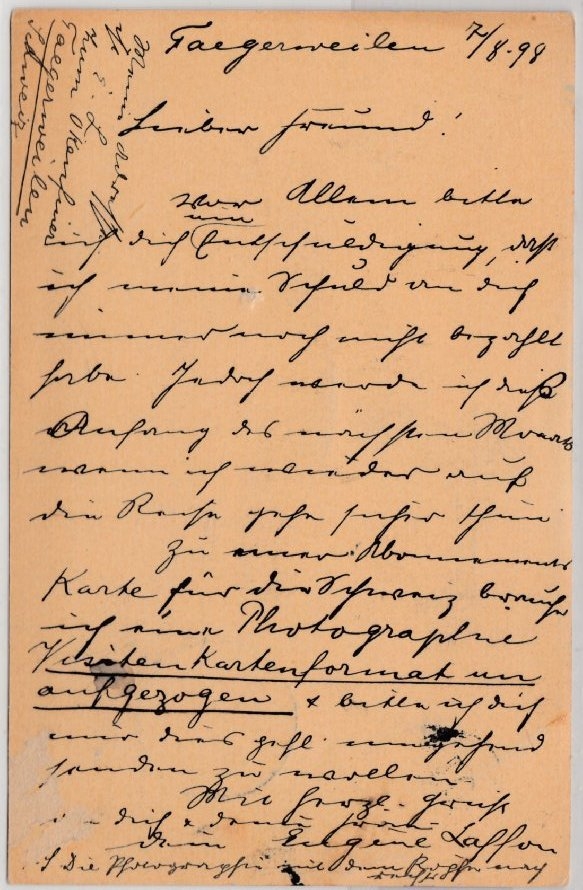 Taegerweilen 7/8.98
Meine Adresse
E. L.
zum
Taegerweilen
Schweiz
Lieber Freund!
Vor Allem bitte
um
ich dich Entschuldigung, daß
ich meine Schuld an dich
immer noch nicht bezahlt
habe. Jedoch werde ich dieß
Anfang des nächsten Monats
wenn ich wieder auf
die Reise gehe sicher thun
Zu einer Abonnements
Karte für die Schweiz brauche
ich eine Photographie
Visitenkartenformat un
aufgezogen & bitte ich dich
mir dies gefl. umgehend
senden zu wollen
Mit herzl. Gruß
dich & deine Frau
dein Eugène Laffon
Die Photographie mit dem nach